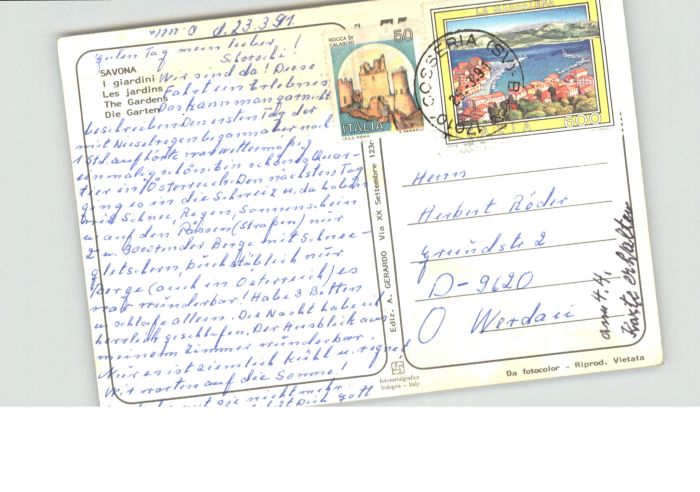 d. 23.3.91
Guten Tag mein lieber,!
SAVONA
I giardini
Les jardins
The Gardens
Die Garten
Wir sind da! Diese
Fahrt ein Erlebnis
Das kann man garnicht
beschreiben Den ersten Tag der
mit Nieselregen begann aber nach
1 Std. aufhörte war
einmalig schön bis
in Österreich. Den nächsten Tag
ging es in die Schweiz u. da haben
mit Schnee, Regen, Sonnenschein
u. auf den Pässen (Straßen) nur
2 u. Berge mit Schnee-
gletschern, buchstäblich nur
Berge (auch in Österreich) es
war wunderbar! Habe 3 Betten
u. schlafe allein. Die Nacht habe ich
herrlich geschlafen. Der Ausblick aus
meinem Zimmer wunderbar.
Nur es ist ziemlich kühl u. regnet
Wir warten auf die Sonne!
nicht mehr.
Dich Gott
Ediz. A. GERARDO Via XX Settembre 123r
ROCCA DI
CALASCIO
50
ITALIA
I.P.Z.S. ROMA
LA MADDALENA
600
17010 COSSERIA (SV)
Herrn
Herbert Röder
Grundstr. 2
D-9620
O Werdau
am 4.4.
Karte erhalten
fotometalgrafica
bologna - Italy
Da fotocolor - Riprod. Vietata